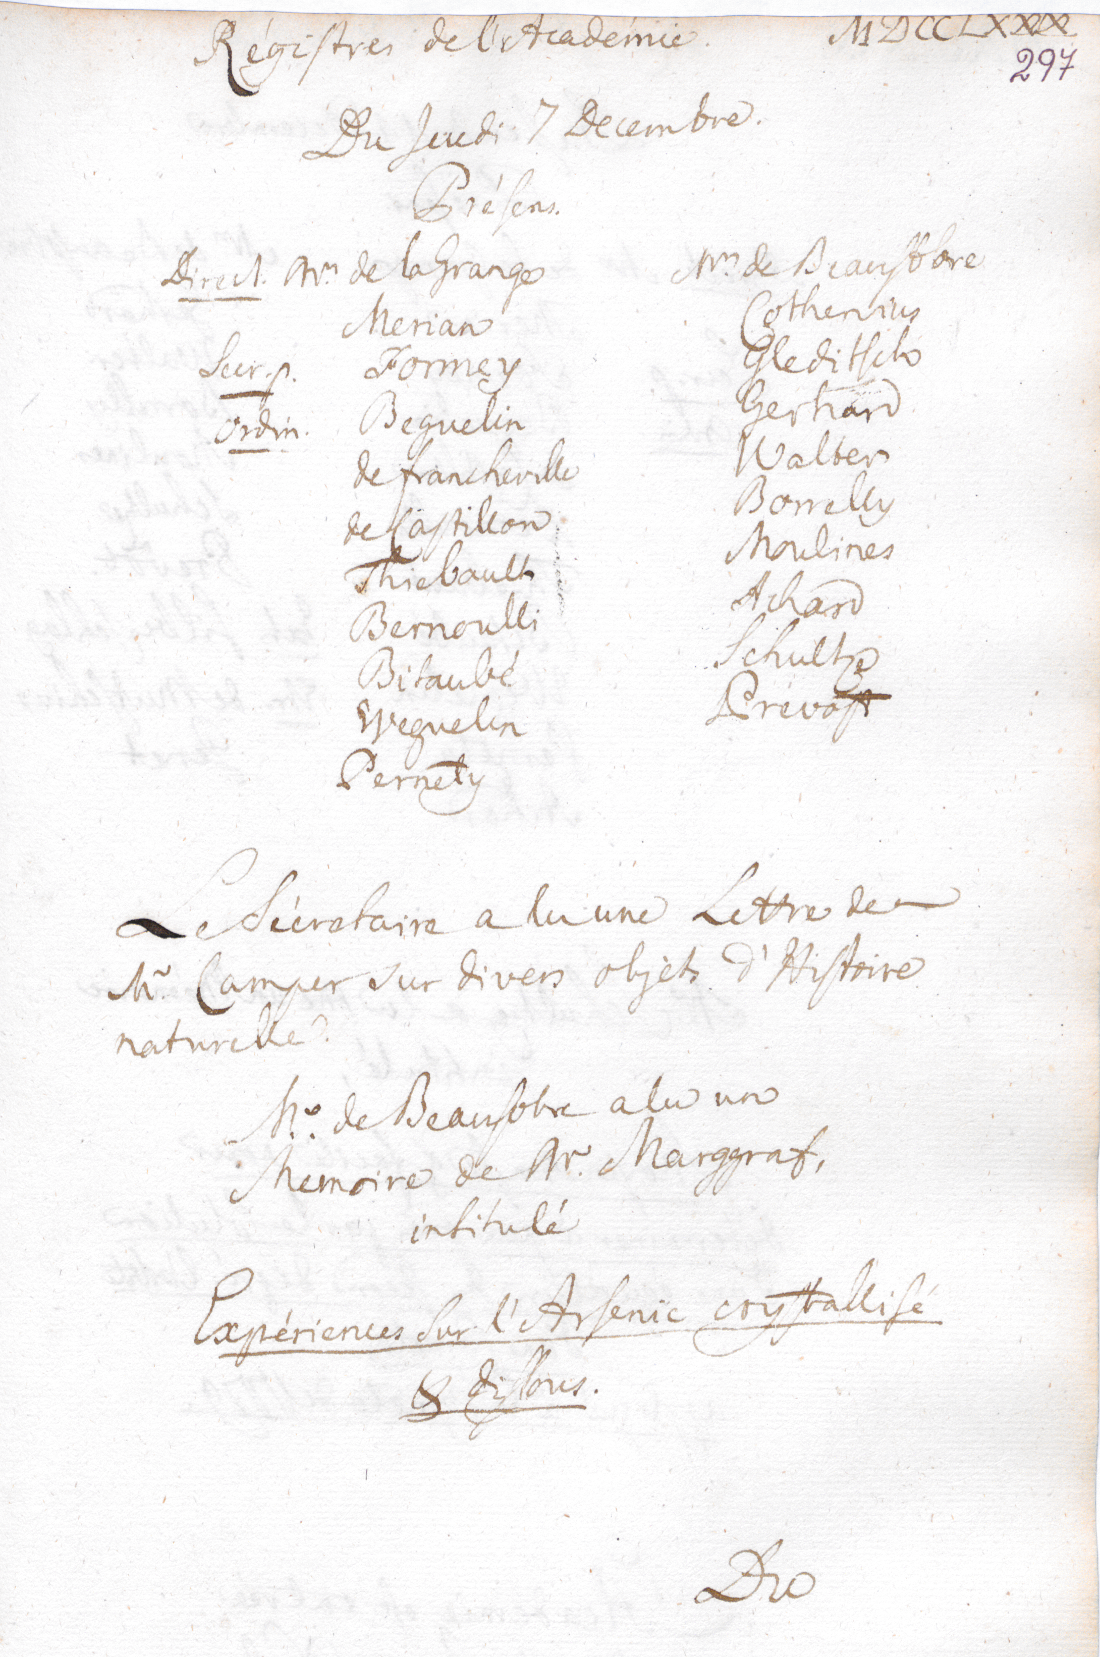 Régistres de l'Académie.
MDCCLXXX
297
Du Jeudi 7 Decembre.
Présens.
Direct. Mrs de la Grange
Merian
Secr. p. Formey
Ordin. Beguelin
de francheville
de Castillon
Thiebault
Bernoulli
Bitaubé
Weguelin
Pernety
Mrs de Beausobre
Cothenius
Gleditsch
Gerhard
Walter
Borrelly
Moulines
Achard
Schultze
Prevost
Le Sécretaire a lu une Lettre de
Mr. Camper sur divers objets d'Histoire
naturelle.
Mr. de Beausobre a lu un
Memoire de Mr. Marggraf,
intitulé
Expériences sur l'Arsenic crystallisé
& dissous.
Du